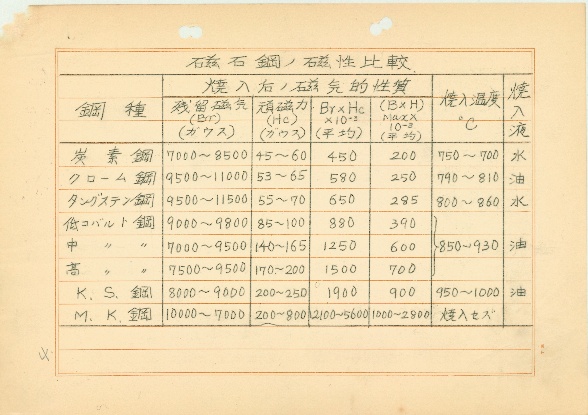 磁石鋼ノ磁性比較
鋼種 焼入后ノ磁気的性質 焼入温度 ℃ 焼入液
残留磁気 (Br) (ガウス) 頑磁力 (Hc) (ガウス) Br×Hc ×10⁻³ (平均) (B×H) Max× 10⁻³ (平均)
炭素鋼 7000〜8500 45〜60 450 200 750〜700 水
クローム鋼 9500〜11000 53〜65 580 250 790〜810 油
タングステン鋼 9500〜11500 55〜70 650 285 800〜860 水
低コバルト鋼 9000〜9800 85〜100 880 390
中 〃 〃 7000〜9500 140〜165 1250 600 850〜930 油
高 〃 〃 7500〜9500 170〜200 1500 700
K. S. 鋼 8000〜9000 200〜250 1900 900 950〜1000 油
M. K. 鋼 10000〜7000 200〜800 2100〜5600 1000〜2800 焼入セズ